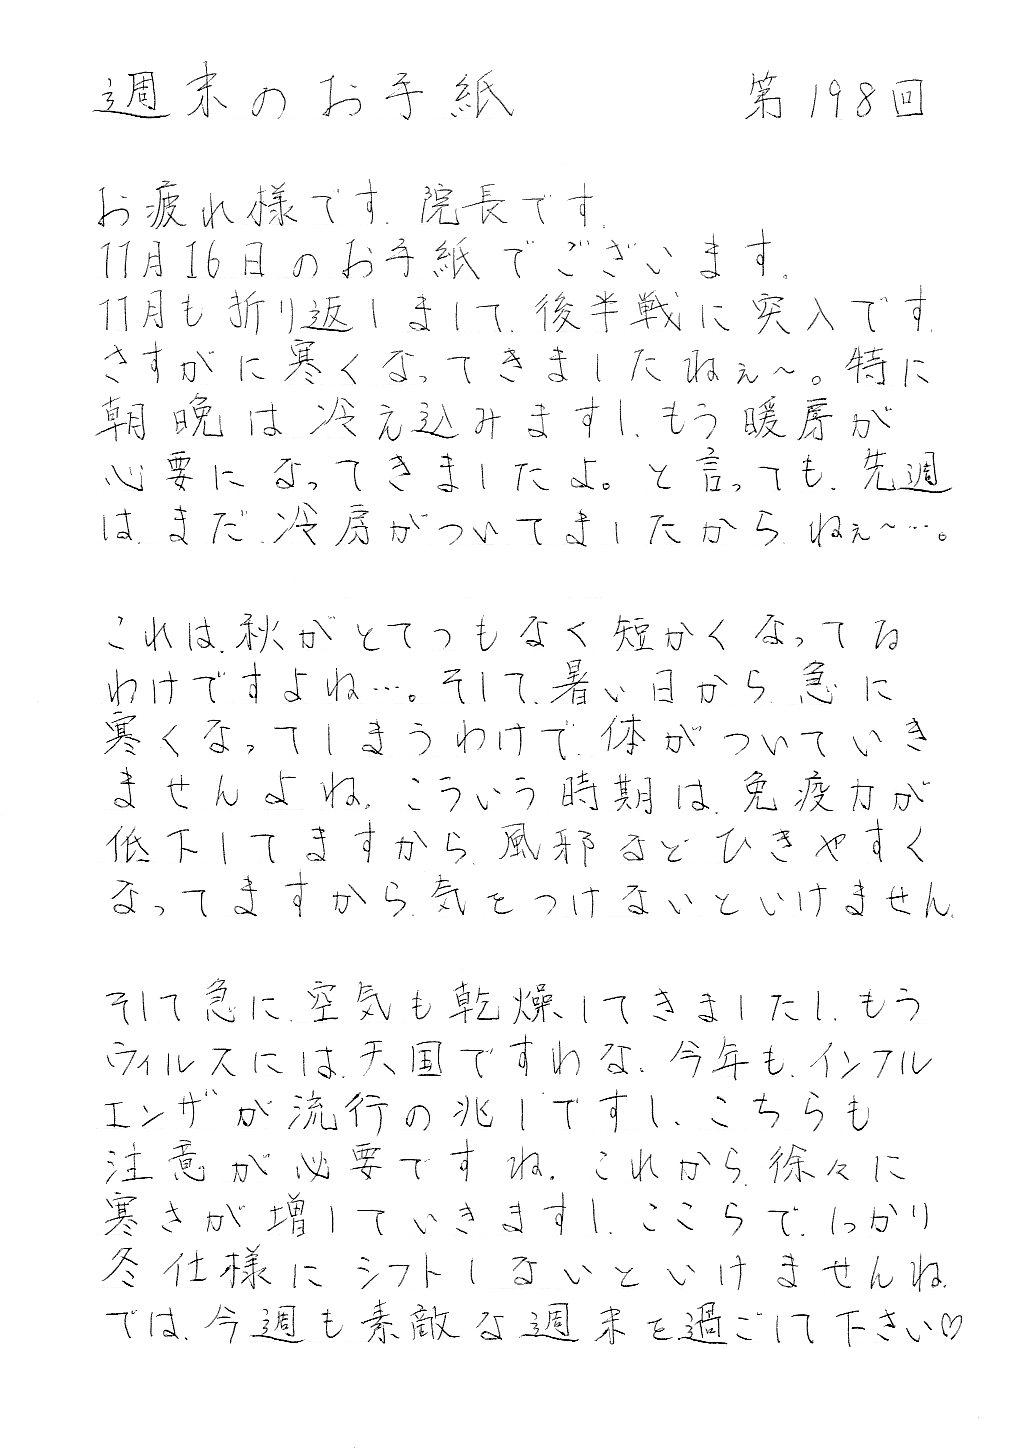 週末のお手紙 第198回
お疲れ様です、院長です。
11月16日のお手紙でございます。
11月も折り返しまして、後半戦に突入です。
さすがに寒くなってきましたねぇ～。特に
朝晩は冷え込みますし、もう暖房が
必要になってきましたよ。と言っても、先週
は、まだ、冷房がついてましたからねぇ～…。
これは、秋がとてつもなく短かくなってる
わけですよね…。そして、暑い日から、急に
寒くなってしまうわけで、体がついていき
ませんよね。こういう時期は、免疫力が
低下してますから、風邪などひきやすく
なってますから、気をつけないといけません。
そして急に、空気も乾燥してきましたし、もう
ウィルスには、天国ですわな、今年も、インフル
エンザが流行の兆しですし、こちらも
注意が必要ですね。これから、徐々に
寒さが増していきますし、ここらで、しっかり
冬仕様にシフトしないといけませんね。
では、今週も素敵な週末を過ごして下さい♡